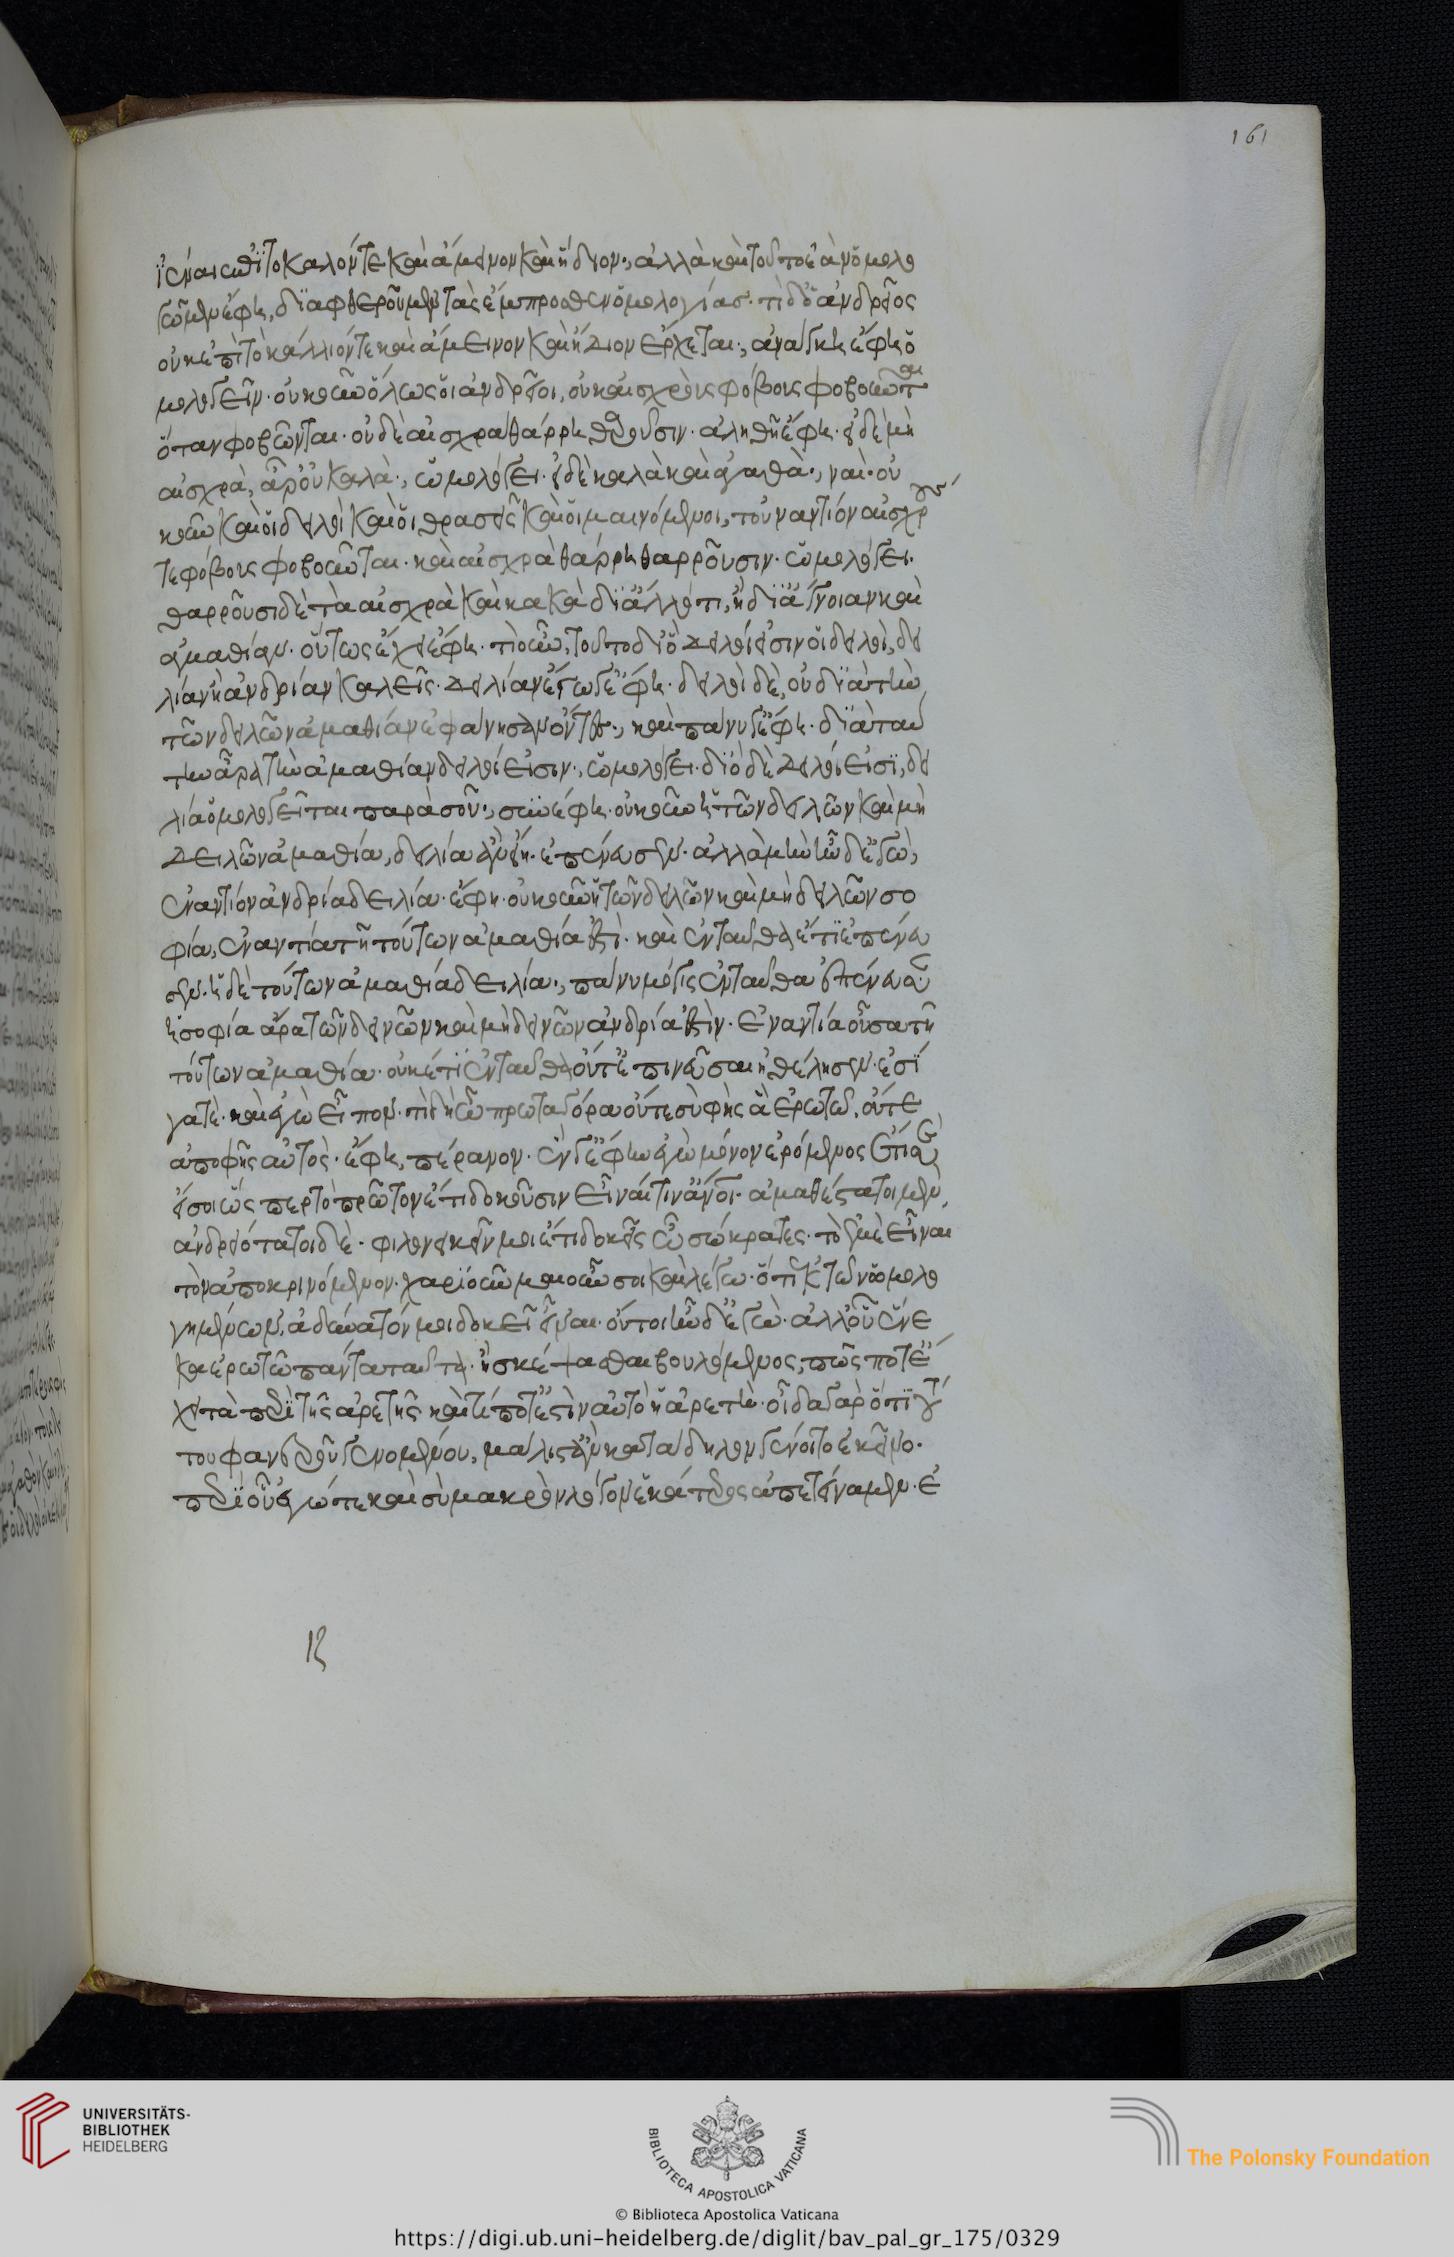 ἰέναι ἐπὶ τὸ καλόν τε καὶ ἄμεινον καὶ ἥδιον; ἀλλὰ καὶ τοῦτο ἐὰν ὁμολο
γῶμεν ἔφη, διαφθεροῦμεν τὰς ἔμπροσθεν ὁμολογίας. τί δ' ὁ ἀνδρεῖος
οὐκ ἐπὶ τὸ κάλλιόν τε καὶ ἄμεινον καὶ ἥδιον ἔρχεται; ἀνάγκη ἔφη ὁ
μολογεῖν. οὐκοῦν ὅλως οἱ ἀνδρεῖοι, οὐκ αἰσχροὺς φόβους φοβοῦνται
ὅταν φοβῶνται. οὐδὲ αἰσχρὰ θάρρη θαρροῦσιν. ἀληθῆ ἔφη. εἰ δὲ μὴ
αἰσχρὰ, ἆρ' οὐ καλὰ; ὡμολόγει. εἰ δὲ καλὰ καὶ ἀγαθὰ; ναὶ. οὐ
κοῦν καὶ οἱ δειλοὶ καὶ οἱ θρασεῖς καὶ οἱ μαινόμενοι, τοὐναντίον αἰσχρούς
τε φόβους φοβοῦνται. καὶ αἰσχρὰ θάρρη θαρροῦσιν. ὡμολόγει.
θαρροῦσι δὲ τὰ αἰσχρὰ καὶ κακὰ δι' ἄλλό τι, ἢ δι' ἄγνοιαν καὶ
ἀμαθίαν. οὕτως ἔχει ἔφη. τί οὖν, τοῦτο δι' ὃ δειλοί εἰσιν οἱ δειλοὶ, δει
λίαν ἢ ἀνδρίαν καλεῖς. δειλίαν ἔγωγ' ἔφη. δειλοὶ δὲ, οὐ διὰ τὴν
τῶν δεινῶν ἀμαθίαν ἐφάνησαν ὄντες; καὶ πάνυ γ' ἔφη. διὰ ταύ
την ἄρα τὴν ἀμαθίαν δειλοί εἰσιν; ὡμολόγει. δι' ὃ δὲ δειλοί εἰσι, δει
λία ὁμολογεῖται παρὰ σοῦ; συνέφη. οὐκοῦν ἡ τῶν δεινῶν καὶ μὴ
δεινῶν ἀμαθία, δειλία ἂν εἴη. ἐπένευσεν. ἀλλὰ μὴν ἦν δ' ἐγὼ,
ἐναντίον ἀνδρία δειλία. ἔφη. οὐκοῦν ἡ τῶν δεινῶν καὶ μὴ δεινῶν σο
φία, ἐναντία τῇ τούτων ἀμαθίᾳ ἐστί. καὶ ἐνταῦθα ἔτι ἐπένευ
σεν. ἡ δὲ τούτων ἀμαθία δειλία; πάνυ μόγις ἐνταῦθα ἐπένευσεν.
ἡ σοφία ἄρα τῶν δεινῶν καὶ μὴ δεινῶν ἀνδρία ἐστὶν. ἐναντία οὖσα τῇ
τούτων ἀμαθίᾳ. οὐκέτι ἐνταῦθα οὔτ' ἐπινεῦσαι ἠθέλησεν. ἐσί
γα τὲ. καὶ ἐγὼ εἶπον. τί δὴ ὦ πρωταγόρα οὔτε σὺ φὴς ἃ ἐρωτῶ, οὔτε
ἀποφῇς αὐτὸς. ἔφη, πέρανον. ἕν γ' ἔφην ἐγὼ μόνον ἐρόμενος ἔτι σὲ
εἴ σοι ὥσπερ τὸ πρῶτον ἔτι δοκοῦσιν εἶναί τινες ἄνθρωποι. ἀμαθέστατοι μὲν,
ἀνδρειότατοι δὲ. φιλονεικεῖν μοι ἔτι δοκεῖς ὦ σώκρατες. τὸ ἐμὲ εἶναι
τὸν ἀποκρινόμενον. χαριοῦμαι οὖν σοι καὶ λέγω. ὅτι ἐκ τῶν ὡμολο
γημένων, ἀδύνατόν μοι δοκεῖ εἶναι. οὔτοι ἦν δ' ἐγὼ. ἄλλου ἕνε
κα ἐρωτῶ πάντα ταῦτα. ἢ σκέψασθαι βουλόμενος, πῶς ποτ' ἔ
χει τὰ περὶ τῆς ἀρετῆς καὶ τί ποτ' ἐστὶν αὐτὸ ἡ ἀρετή. οἶδα γὰρ ὅτι τού
του φανεροῦ γενομένου, μάλιστ' ἂν κατάδηλον γένοιτο ἐκεῖνο.
περὶ οὗ ἐγώ τε καὶ σὺ μακρὸν λόγον ἑκάτερος ἀπετείναμεν. ἐ
161
UNIVERSITÄTS-
BIBLIOTHEK
HEIDELBERG
BIBLIOTECA APOSTOLICA VATICANA
The Polonsky Foundation
© Biblioteca Apostolica Vaticana
https://digi.ub.uni-heidelberg.de/diglit/bav_pal_gr_175/0329